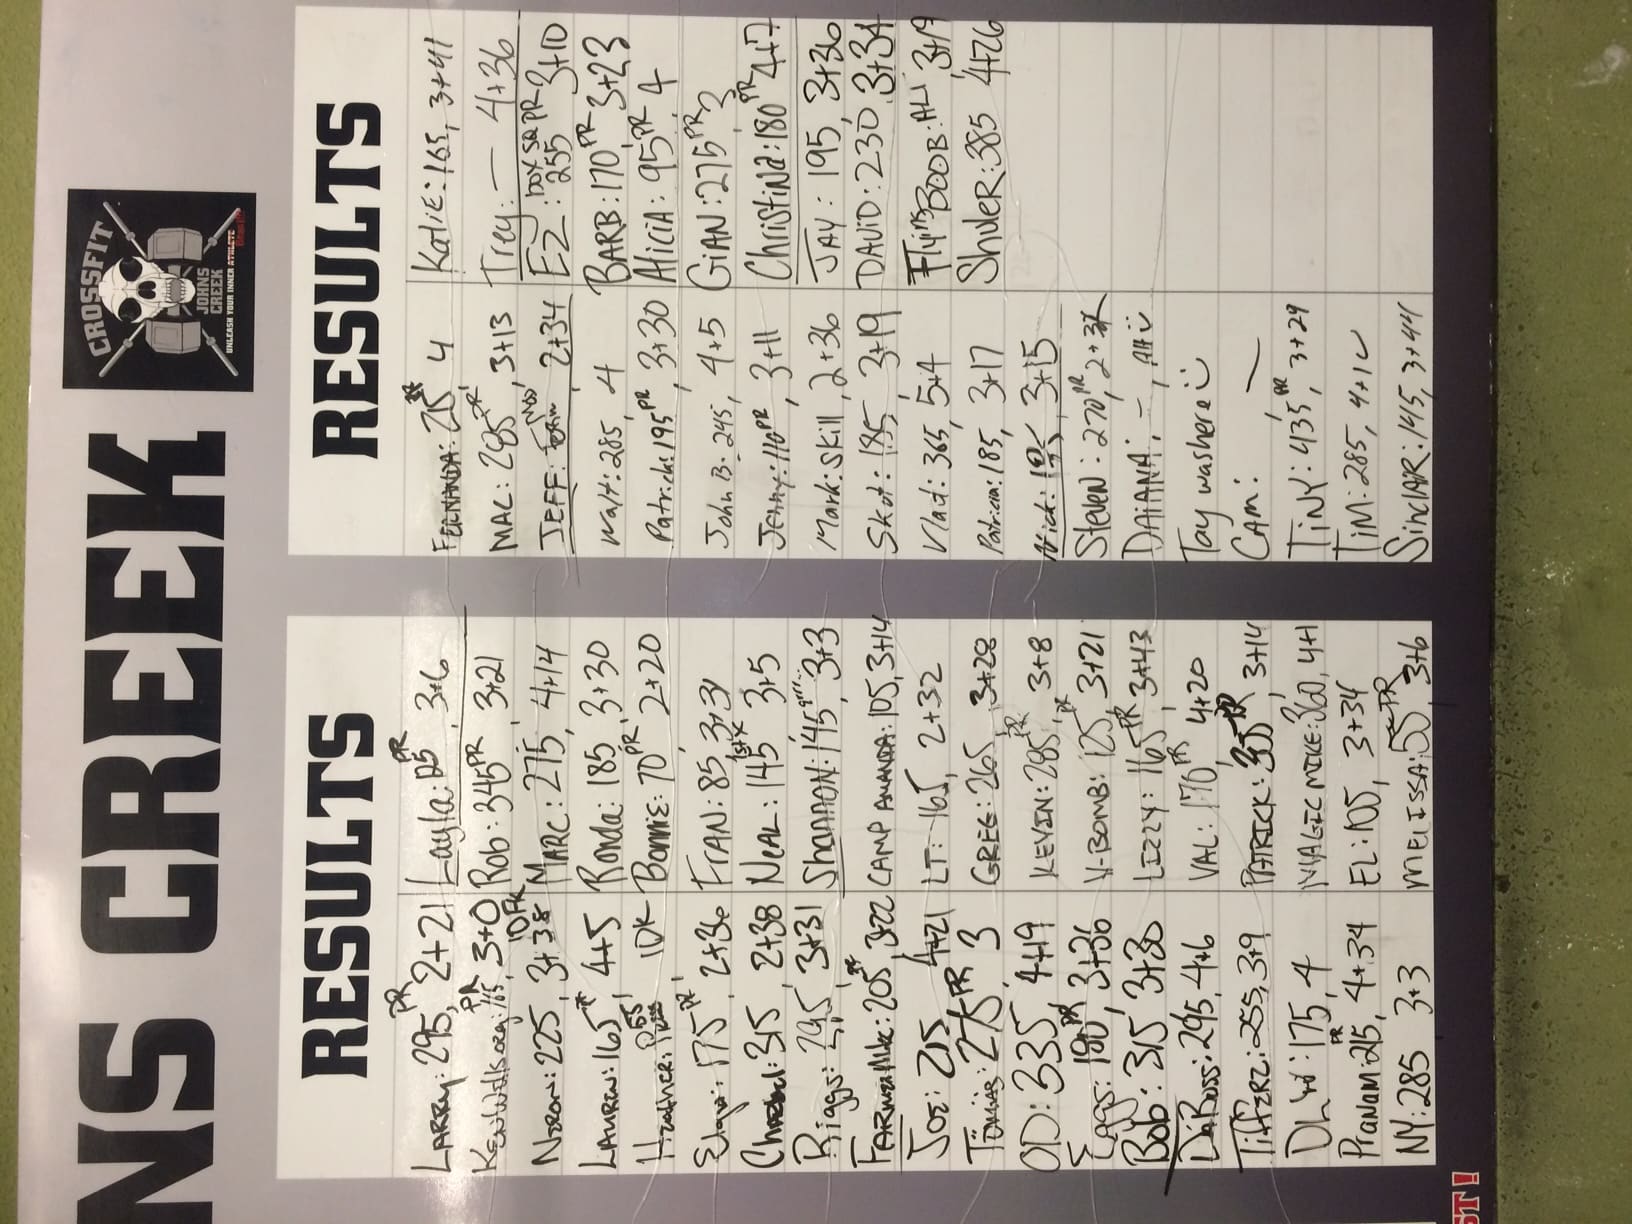 NS CREEK
CROSSFIT
JOHNS
CREEK
UNLEASH YOUR INNER ATHLETE
RESULTS
LARRY: 295 PR, 2+21
3+0
NELSON: 225, 3+38
LAUREN: 165 PR, 4+5
10K
175 PR, 2+36
315, 2+38
Riggs: 245, 3+31
FARMER MIKE: 205 PR, 3+22
JOE: 215 4+21
TOMAS: 275 PR 3
OD: 335, 4+19
Eggs: 190 PR, 3+36
Bob: 315, 3+30
DaBoss: 295, 4+6
255, 3+9
175, 4
Pranom: 215 PR, 4+34
NY: 285 3+3
Layla: 125 PR, 3+6
Rob: 345 PR, 3+21
MARC: 275, 4+14
Ronda: 185, 3+30
Bonnie: 70 PR, 2+20
FRAN: 85, 3+31
NEAL: 145 3+5
Shannon: 145, 3+3
CAMP AMANDA: 105, 3+14
LT: 165, 2+32
GREG: 265 3+28
KEVIN: 285 PR, 3+8
V-BOMB: 125 PR, 3+21
LIZZY: 165 PR, 3+43
VAL: 170 PR 4+20
PATRICK: PR, 3+14
MAGIC MIKE: 360, 4+1
EL: 105, 3+34
MELISSA: 55 PR, 3+6
RESULTS
FERNANDA: 215 4
MAC: 285 PR, 3+13
JEFF: 2+34
Walt: 285, 4
Patrick: 195 PR, 3+30
John B: 245, 4+5
Jenny: 110 PR, 3+11
Mark: skill, 2+36
Skot: 185, 3+19
Vlad: 365, 5+4
Patricia: 185, 3+17
Nick: 3+15
Steven: 270 PR, 2+31
DAIANA: –
Tay was here
CAM: —
TiNY: 435 PR, 3+29
TiM: 285, 4+12
SinclAR: 145, 3+44
Katie: 165, 3+41
Trey: — 4+36
EZ: box sq PR 255 3+10
BARB: 170 PR, 3+23
Alicia: 95 PR, 4
GIAN: 275 PR, 3
Christina: 180 PR 4+7
JAY: 195, 3+36
DAVID: 230, 3+34
Flying BOOB: ALI 3+19
ShuleR: 385 4+26
ST!